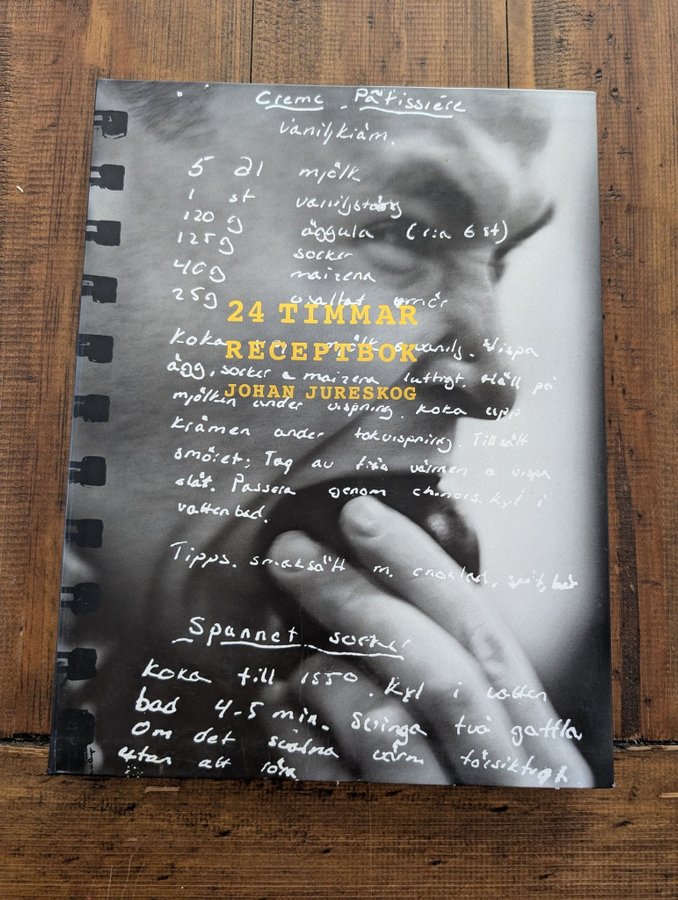 Creme Pâtissiére
Vaniljkräm.
5 dl mjölk
1 st vaniljstång
120 g äggula (ca 6 st)
125g socker
40g maizena
25g osaltat smör
24 TIMMAR
RECEPTBOK
JOHAN JURESKOG
Koka mjölk o vanilj. Vispa
ägg, socker o maizena luftigt. Häll på
mjölken under vispning. Koka upp
krämen under tokvispning. Tillsätt
smöret; Tag av från värmen o vispa
slät. Passera genom chinois. Kyl i
vattenbad.
Tipps. smaksätt m. choklad, sprit, bär
Spannet socker
Koka till 155°. Kyl i vatten
bad 4-5 min. Svinga två gafflar
Om det svalna värm försiktigt
utan att röra